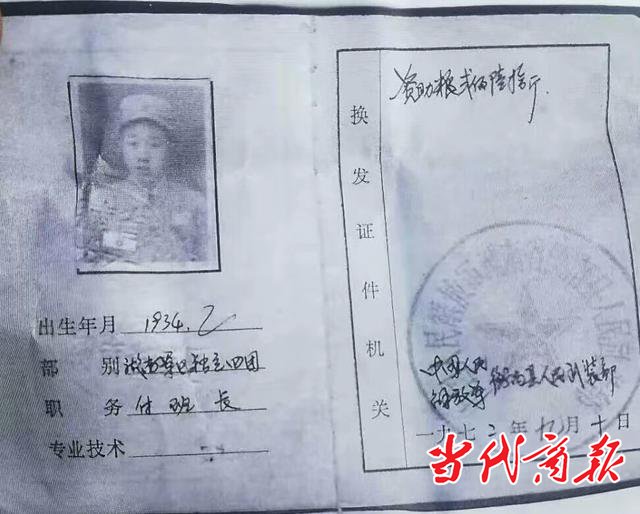 出生年月 1934.2
部 别 湖南军区独立四团
职 务 付班长
专业技术
资助粮弍佰陆拾斤.
换发证件机关
中国人民
解放军 衡南县人民武装部
一九七三年 月十日
当代商报